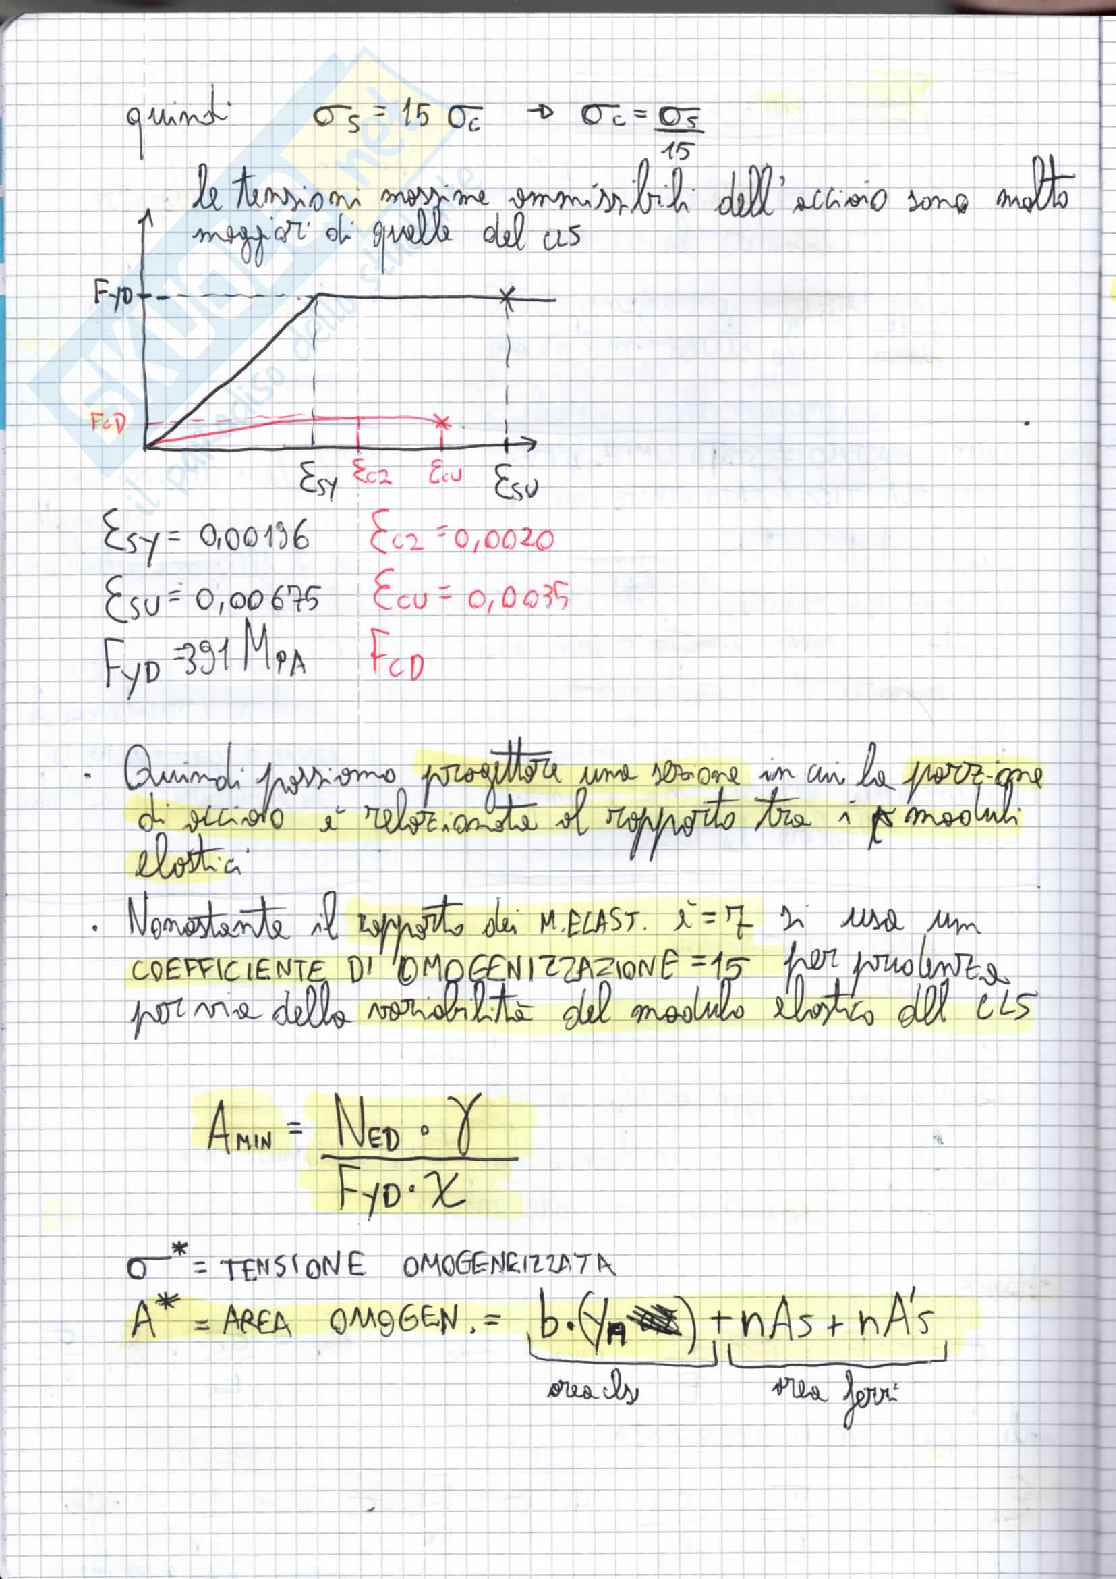 quindi σs = 15 σc → σc = σs/15
le tensioni massime ammissibili dell'acciaio sono molto
maggiori di quelle del cls
FYD
FCD
εSY εC2 εCU εSU
εSY = 0,00196 εC2 = 0,0020
εSU = 0,00675 εCU = 0,0035
FYD = 391 MPA FCD
· Quindi possiamo progettare una sezione in cui la porzione
di acciaio è relazionata al rapporto tra i moduli
elastici
· Nonostante il rapporto dei M.ELAST. è = 7 si usa un
COEFFICIENTE DI OMOGENIZZAZIONE = 15 per prudenza
per via della variabilità del modulo elastico dll CLS
AMIN = NED · γ / FYD · χ
σ* = TENSIONE OMOGENEIZZATA
A* = AREA OMOGEN. = b·(yn) + nAs + nA's
area cls area ferri
SKUOLA.net
il paradiso dello studente